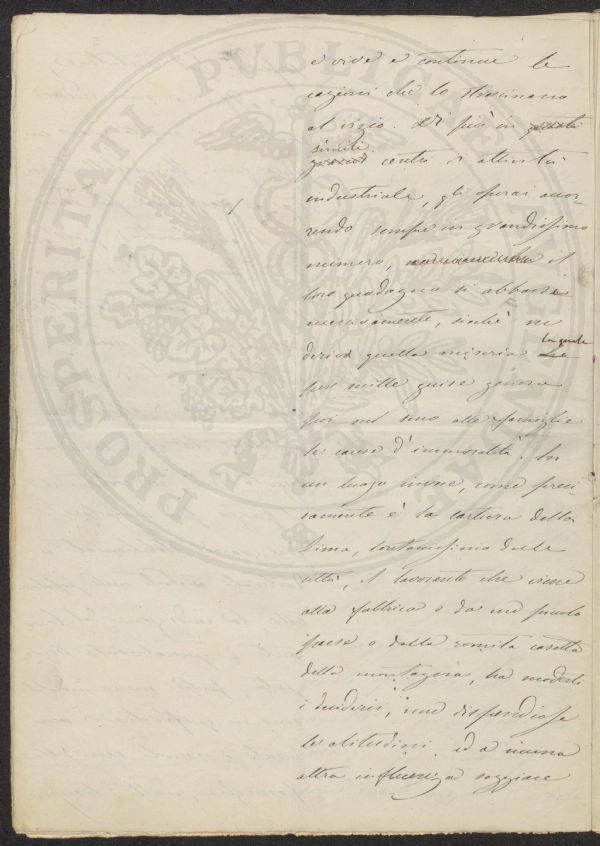 e vive e continue le
cagioni che lo trascinano
al vizio. Di più in
simili
centri di attività
industriale, gli operai accor-
rendo sempre in grandissimo
numero, il
loro guadagno si abbassa
necessariamente, sichè ne
deriva quella miseria la quale
per mille guise genera
poi nel seno alle famiglie
le cause d'immoralità. In
un luogo invece, come preci-
samente è la cartiera della
Lima, lontanissima dalle
città, il lavorante che viene
alla fabbrica o da un piccolo
paese o dalla romita casetta
della montagna, ha modesti
i desiderii, non dispendiose
le abitudini ed a niuna
altra influenza soggiace
PROSPERITATI PVBLICAE AVGENDAE